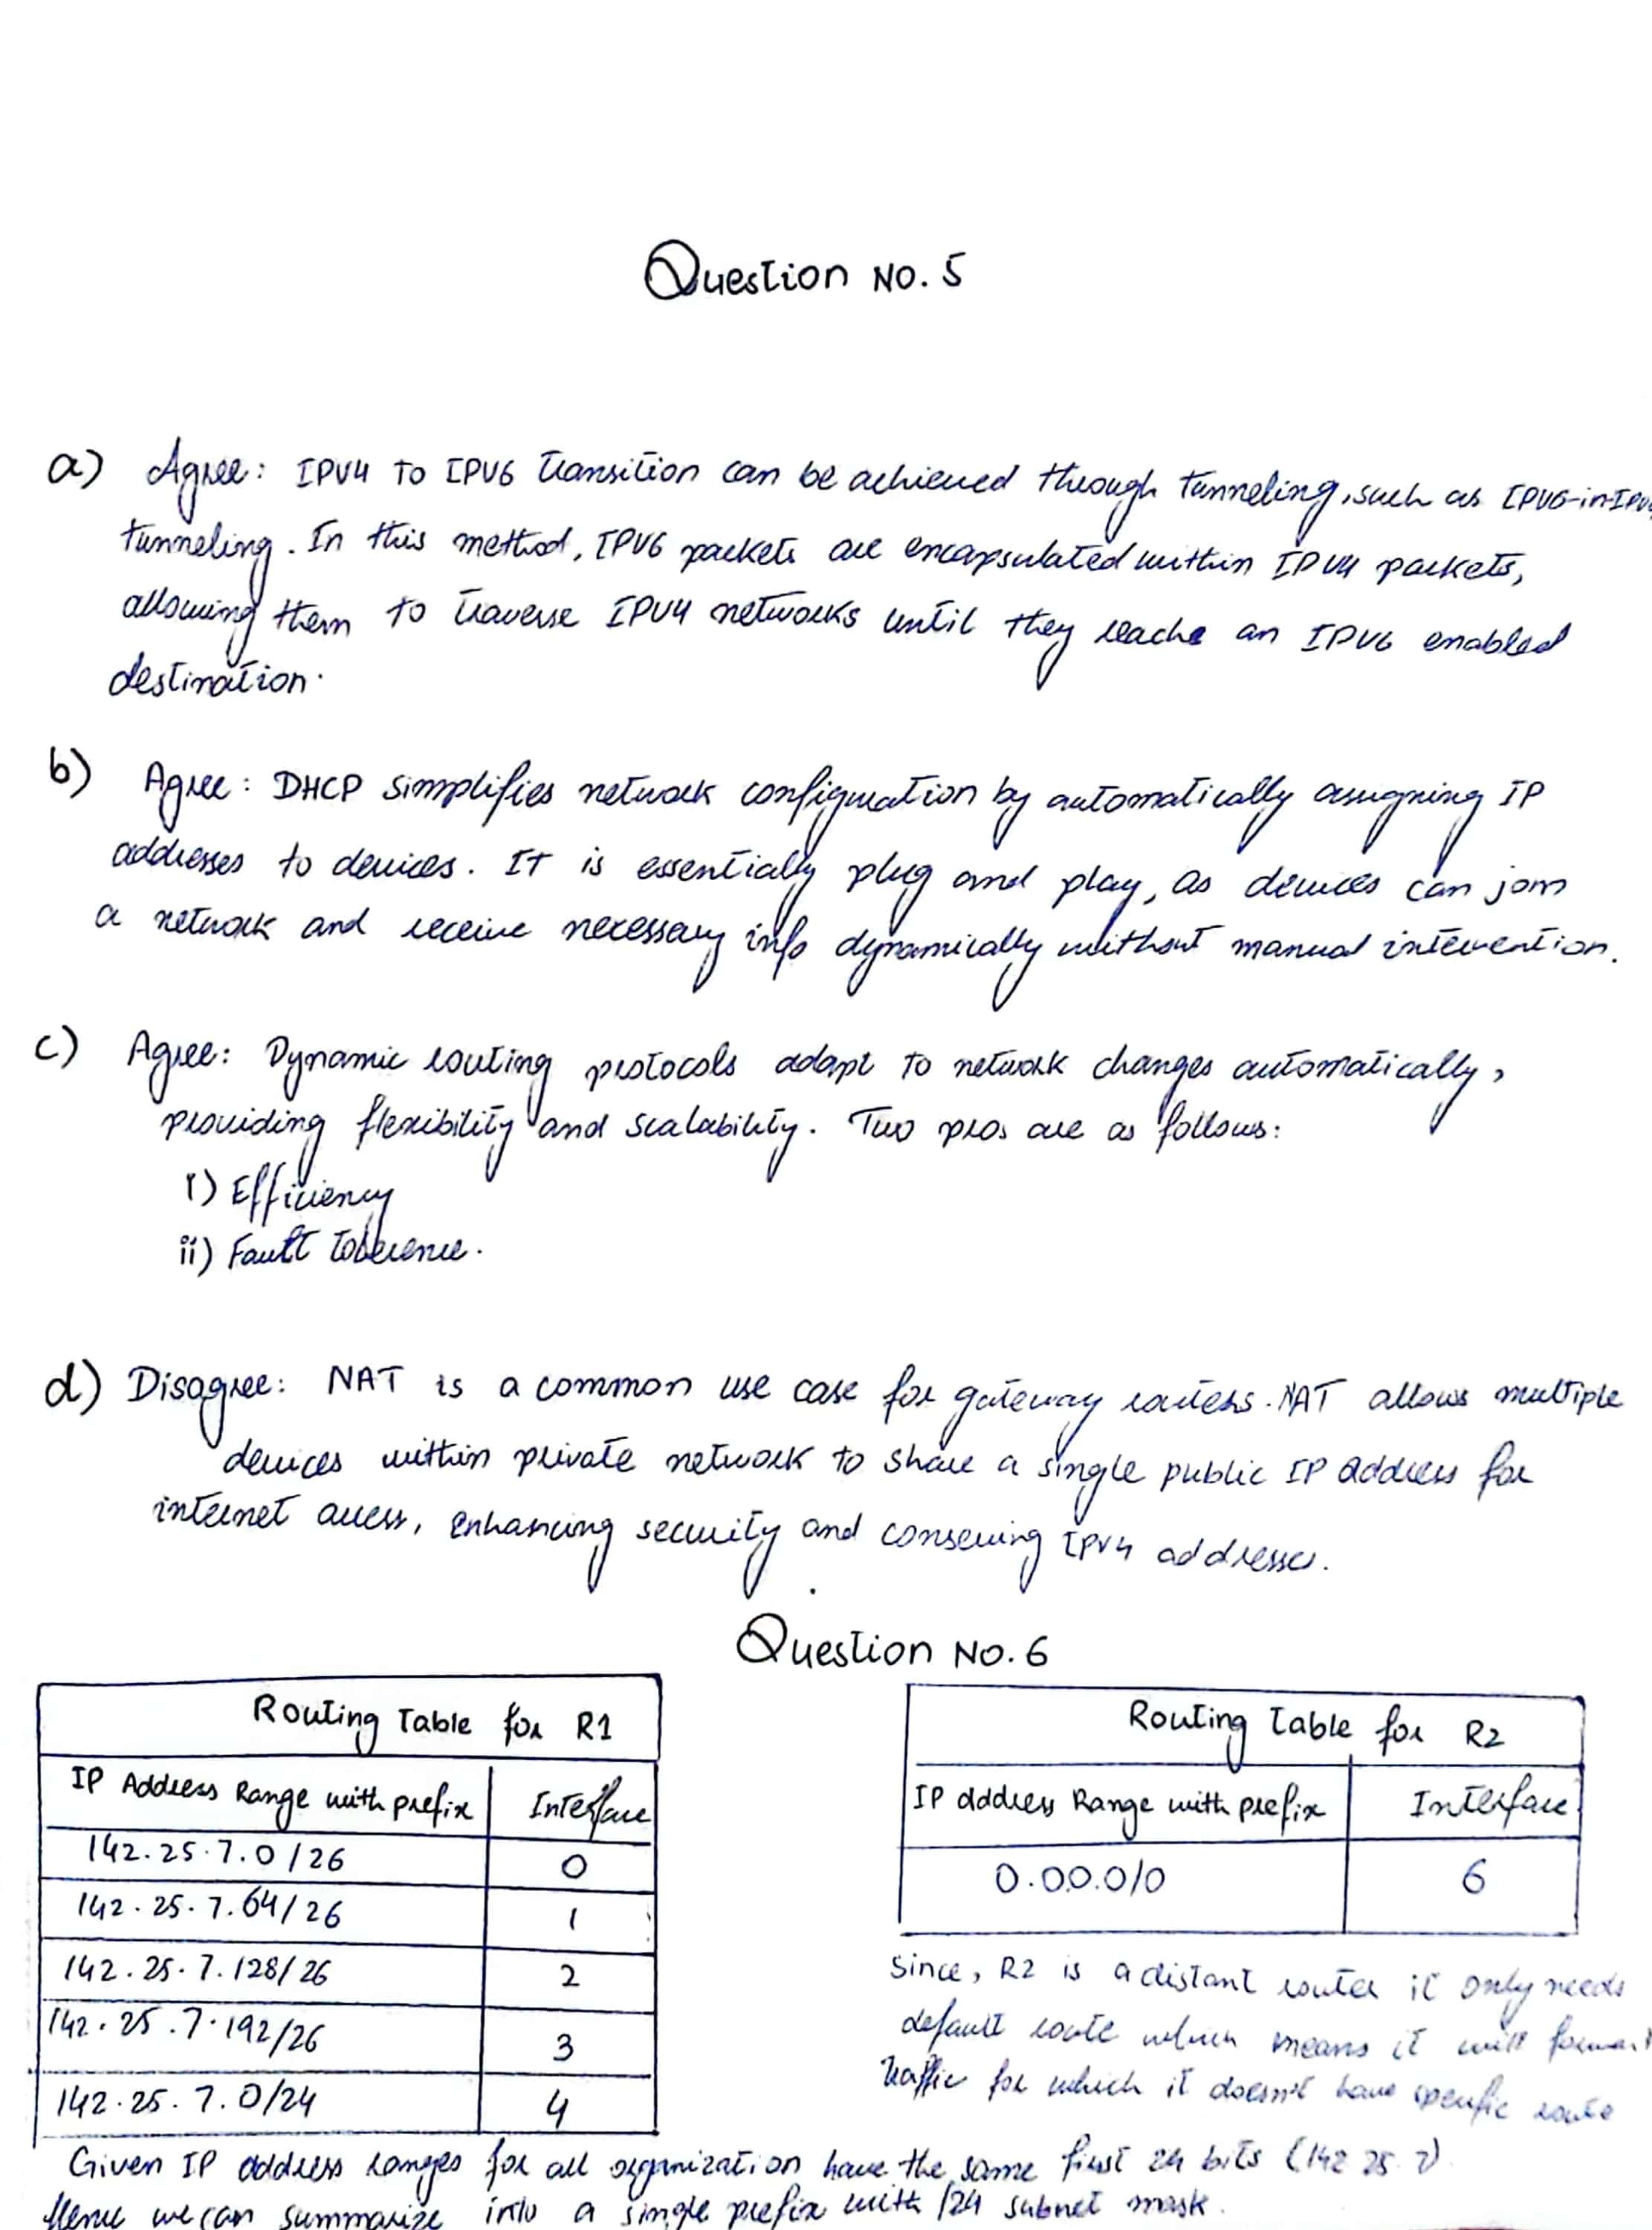 Question No. 5
a) Agree: IPV4 to IPV6 transition can be achieved through tunneling, such as IPV6-in-IPV
tunneling. In this method, IPV6 packets are encapsulated within IPV4 packets,
allowing them to traverse IPV4 networks until they reache an IPV6 enabled
destination.
b) Agree: DHCP simplifies network configuration by automatically assigning IP
addresses to devices. It is essentially plug and play, as devices can join
a network and receive necessary info dynamically without manual intervention.
c) Agree: Dynamic routing protocols adapt to network changes automatically,
providing flexibility and scalability. Two pros are as follows:
i) Efficiency
ii) Fault tolerence.
d) Disagree: NAT is a common use case for gateway routers. NAT allows multiple
devices within private network to share a single public IP address for
internet access, enhancing security and conserving IPV4 addresses.
Question No. 6
Routing Table for R1
IP Address Range with prefix Interface
142.25.7.0/26 0
142.25.7.64/26 1
142.25.7.128/26 2
142.25.7.192/26 3
142.25.7.0/24 4
Routing table for R2
IP address Range with prefix Interface
0.0.0.0/0 6
Since, R2 is a distant router it only needs
default route which means it will forward
traffic for which it doesn't have specific route
Given IP address ranges for all organization have the same first 24 bits (142 25 7)
Hence we can summarize into a single prefix with /24 subnet mask.